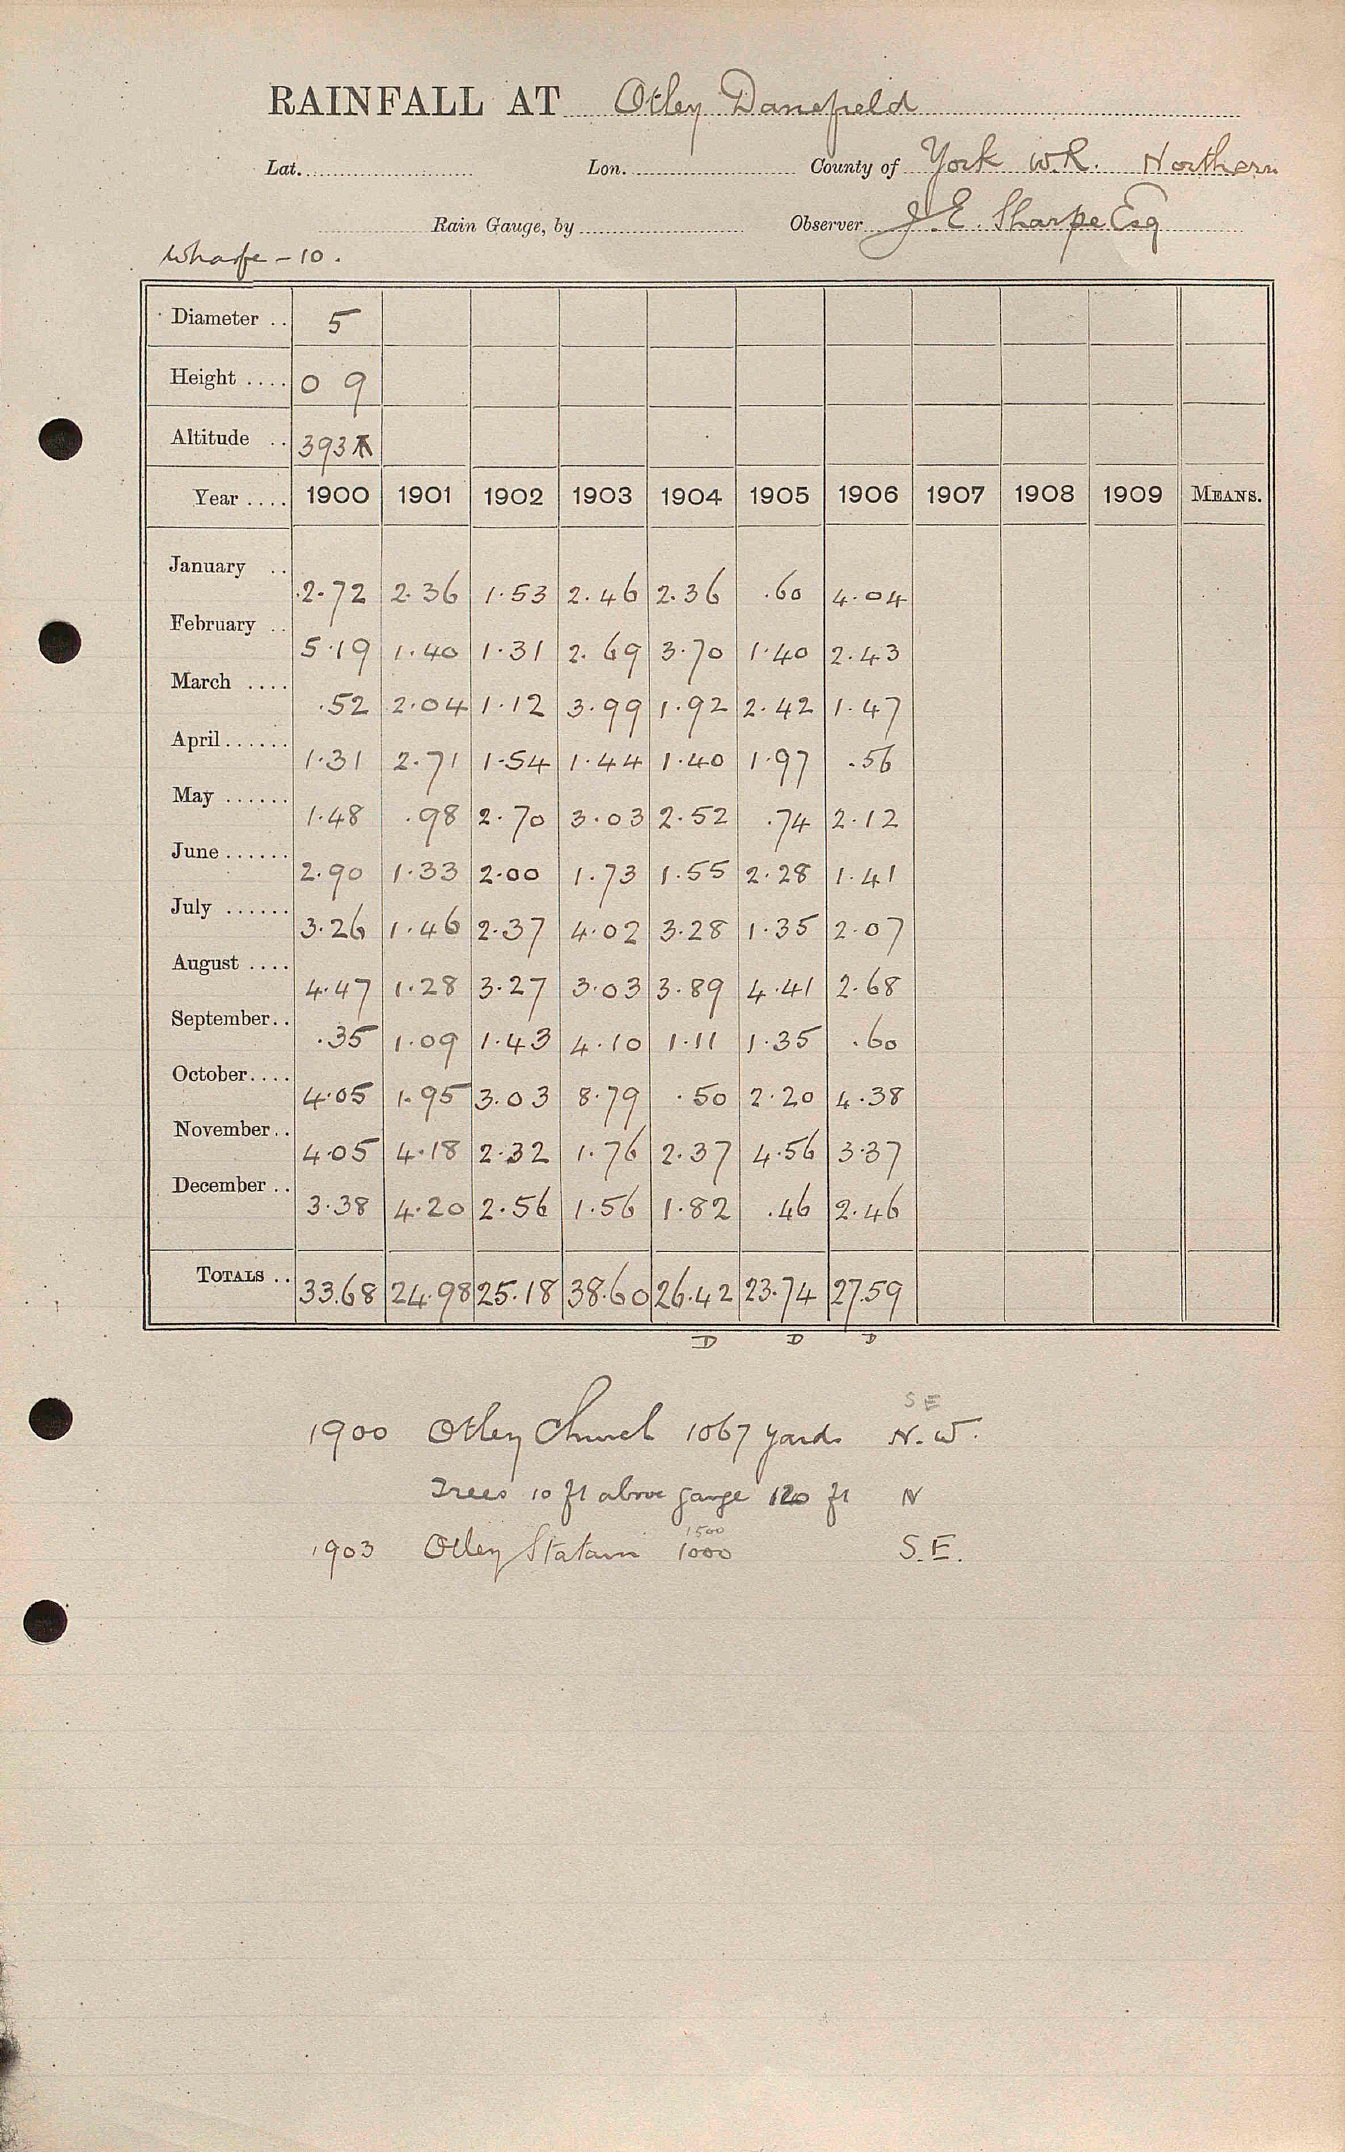 RAINFALL AT Otley Danefield
Lat. Lon. County of York W.R. Northern
Rain Gauge, by Observer J. E. Sharpe Esq
Wharfe - 10.
Diameter .. 5
Height .... 0 9
Altitude .. 393
Year .... 1900 1901 1902 1903 1904 1905 1906 1907 1908 1909 MEANS.
January .. 2.72 2.36 1.53 2.46 2.36 .60 4.04
February .. 5.19 1.40 1.31 2.69 3.70 1.40 2.43
March .... .52 2.04 1.12 3.99 1.92 2.42 1.47
April ...... 1.31 2.71 1.54 1.44 1.40 1.97 .56
May ...... 1.48 .98 2.70 3.03 2.52 .74 2.12
June ...... 2.90 1.33 2.00 1.73 1.55 2.28 1.41
July ...... 3.26 1.46 2.37 4.02 3.28 1.35 2.07
August .... 4.47 1.28 3.27 3.03 3.89 4.41 2.68
September.. .35 1.09 1.43 4.10 1.11 1.35 .60
October.... 4.05 1.95 3.03 8.79 .50 2.20 4.38
November.. 4.05 4.18 2.32 1.76 2.37 4.56 3.37
December .. 3.38 4.20 2.56 1.56 1.82 .46 2.46
TOTALS .. 33.68 24.98 25.18 38.60 26.42 23.74 27.59
D D D
S E
1900 Otley Church 1067 yards N.W.
Trees 10 ft above gauge 120 ft N
1500
1903 Otley Station 1000 S.E.